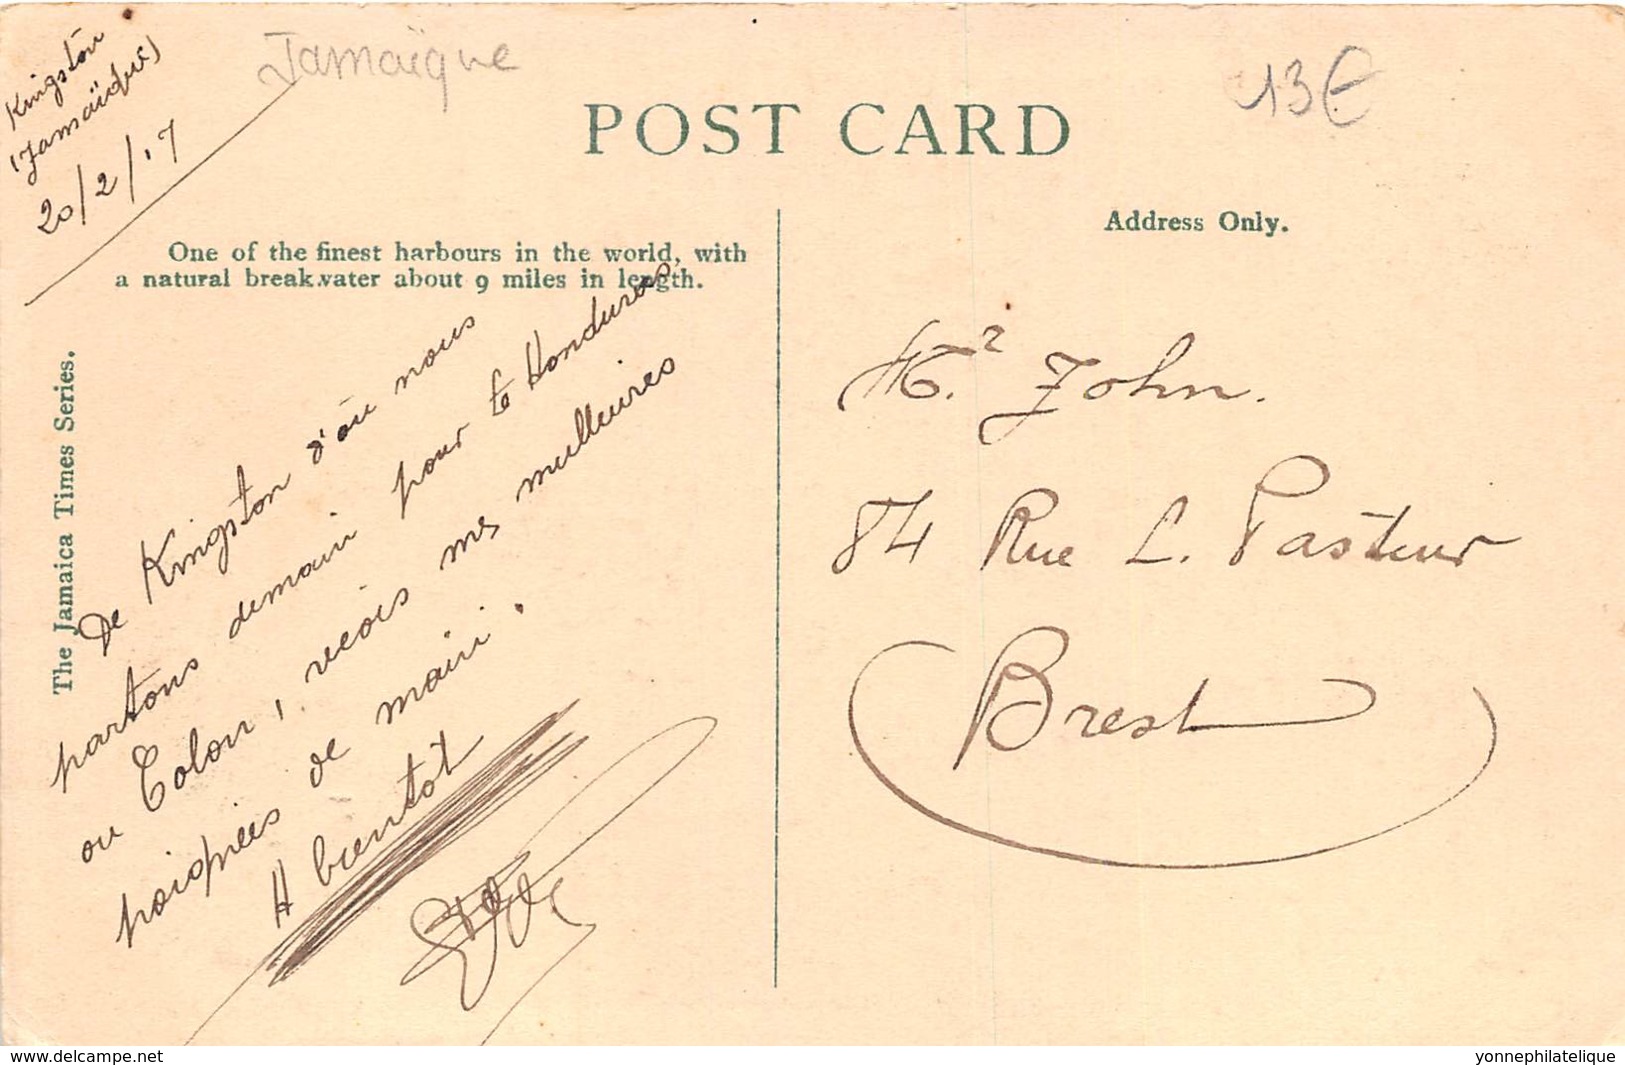 Kingston
(Jamaïque)
20/2/'17
Jamaïque
13€
POST CARD
Address Only.
One of the finest harbours in the world, with
a natural breakwater about 9 miles in length.
The Jamaica Times Series.
De Kingston d'où nous
partons demain pour le Honduras
ou Colon, reçois mes meilleures
poignées de main.
A bientot
Mr. John.
84 Rue L. Pasteur
Brest
www.delcampe.net
yonnephilatelique